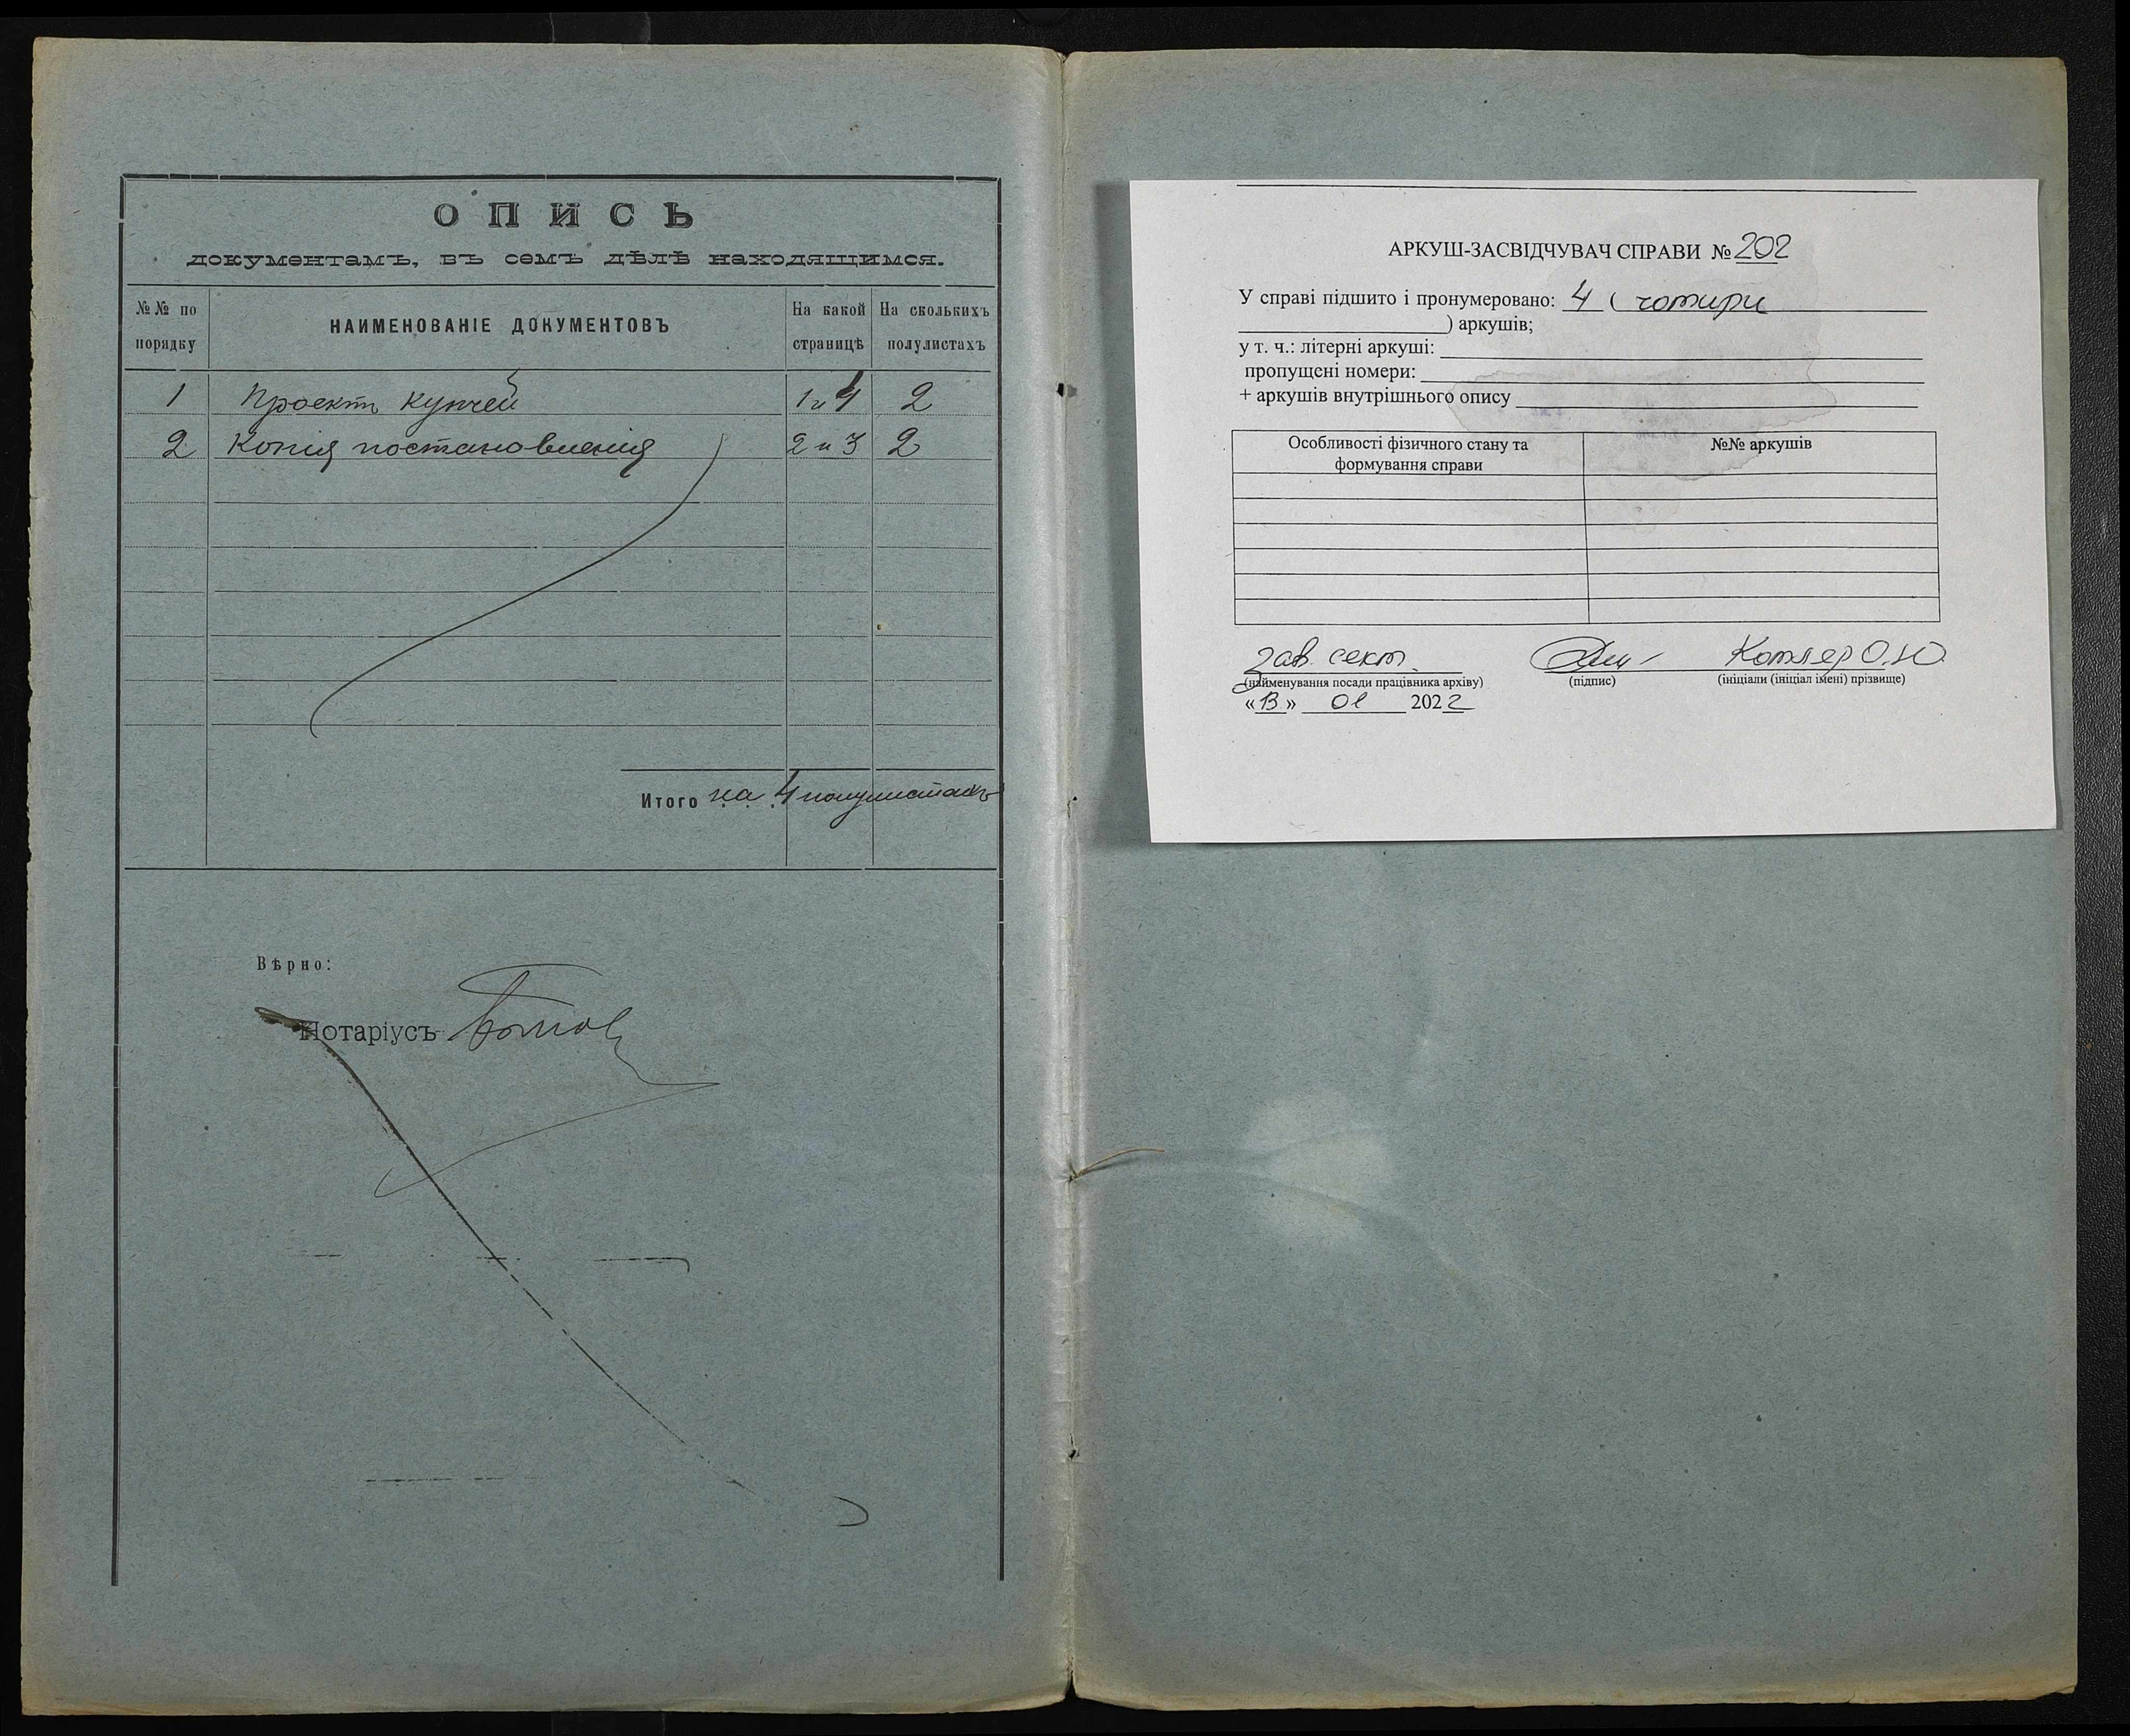 ОПИСЬ
документамъ, въ семъ дѣлѣ находящимся.
№№ по порядку
НАИМЕНОВАНІЕ ДОКУМЕНТОВЪ
На какой страницѣ
На сколькихъ полулистахъ
1 Проектъ купчей 1 и 4 2
2 Копія постановленія 2 и 3 2
Итого на 4 полулистахъ
Вѣрно:
Нотаріусъ
АРКУШ-ЗАСВІДЧУВАЧ СПРАВИ № 202
У справі підшито і пронумеровано: 4 ( чотири
) аркушів;
у т. ч.: літерні аркуші:
пропущені номери:
+ аркушів внутрішнього опису
Особливості фізичного стану та формування справи
№№ аркушів
зав. сект. Котляр О.Ю.
(найменування посади працівника архіву) (підпис) (ініціали (ініціал імені) прізвище)
«13» 01 2022